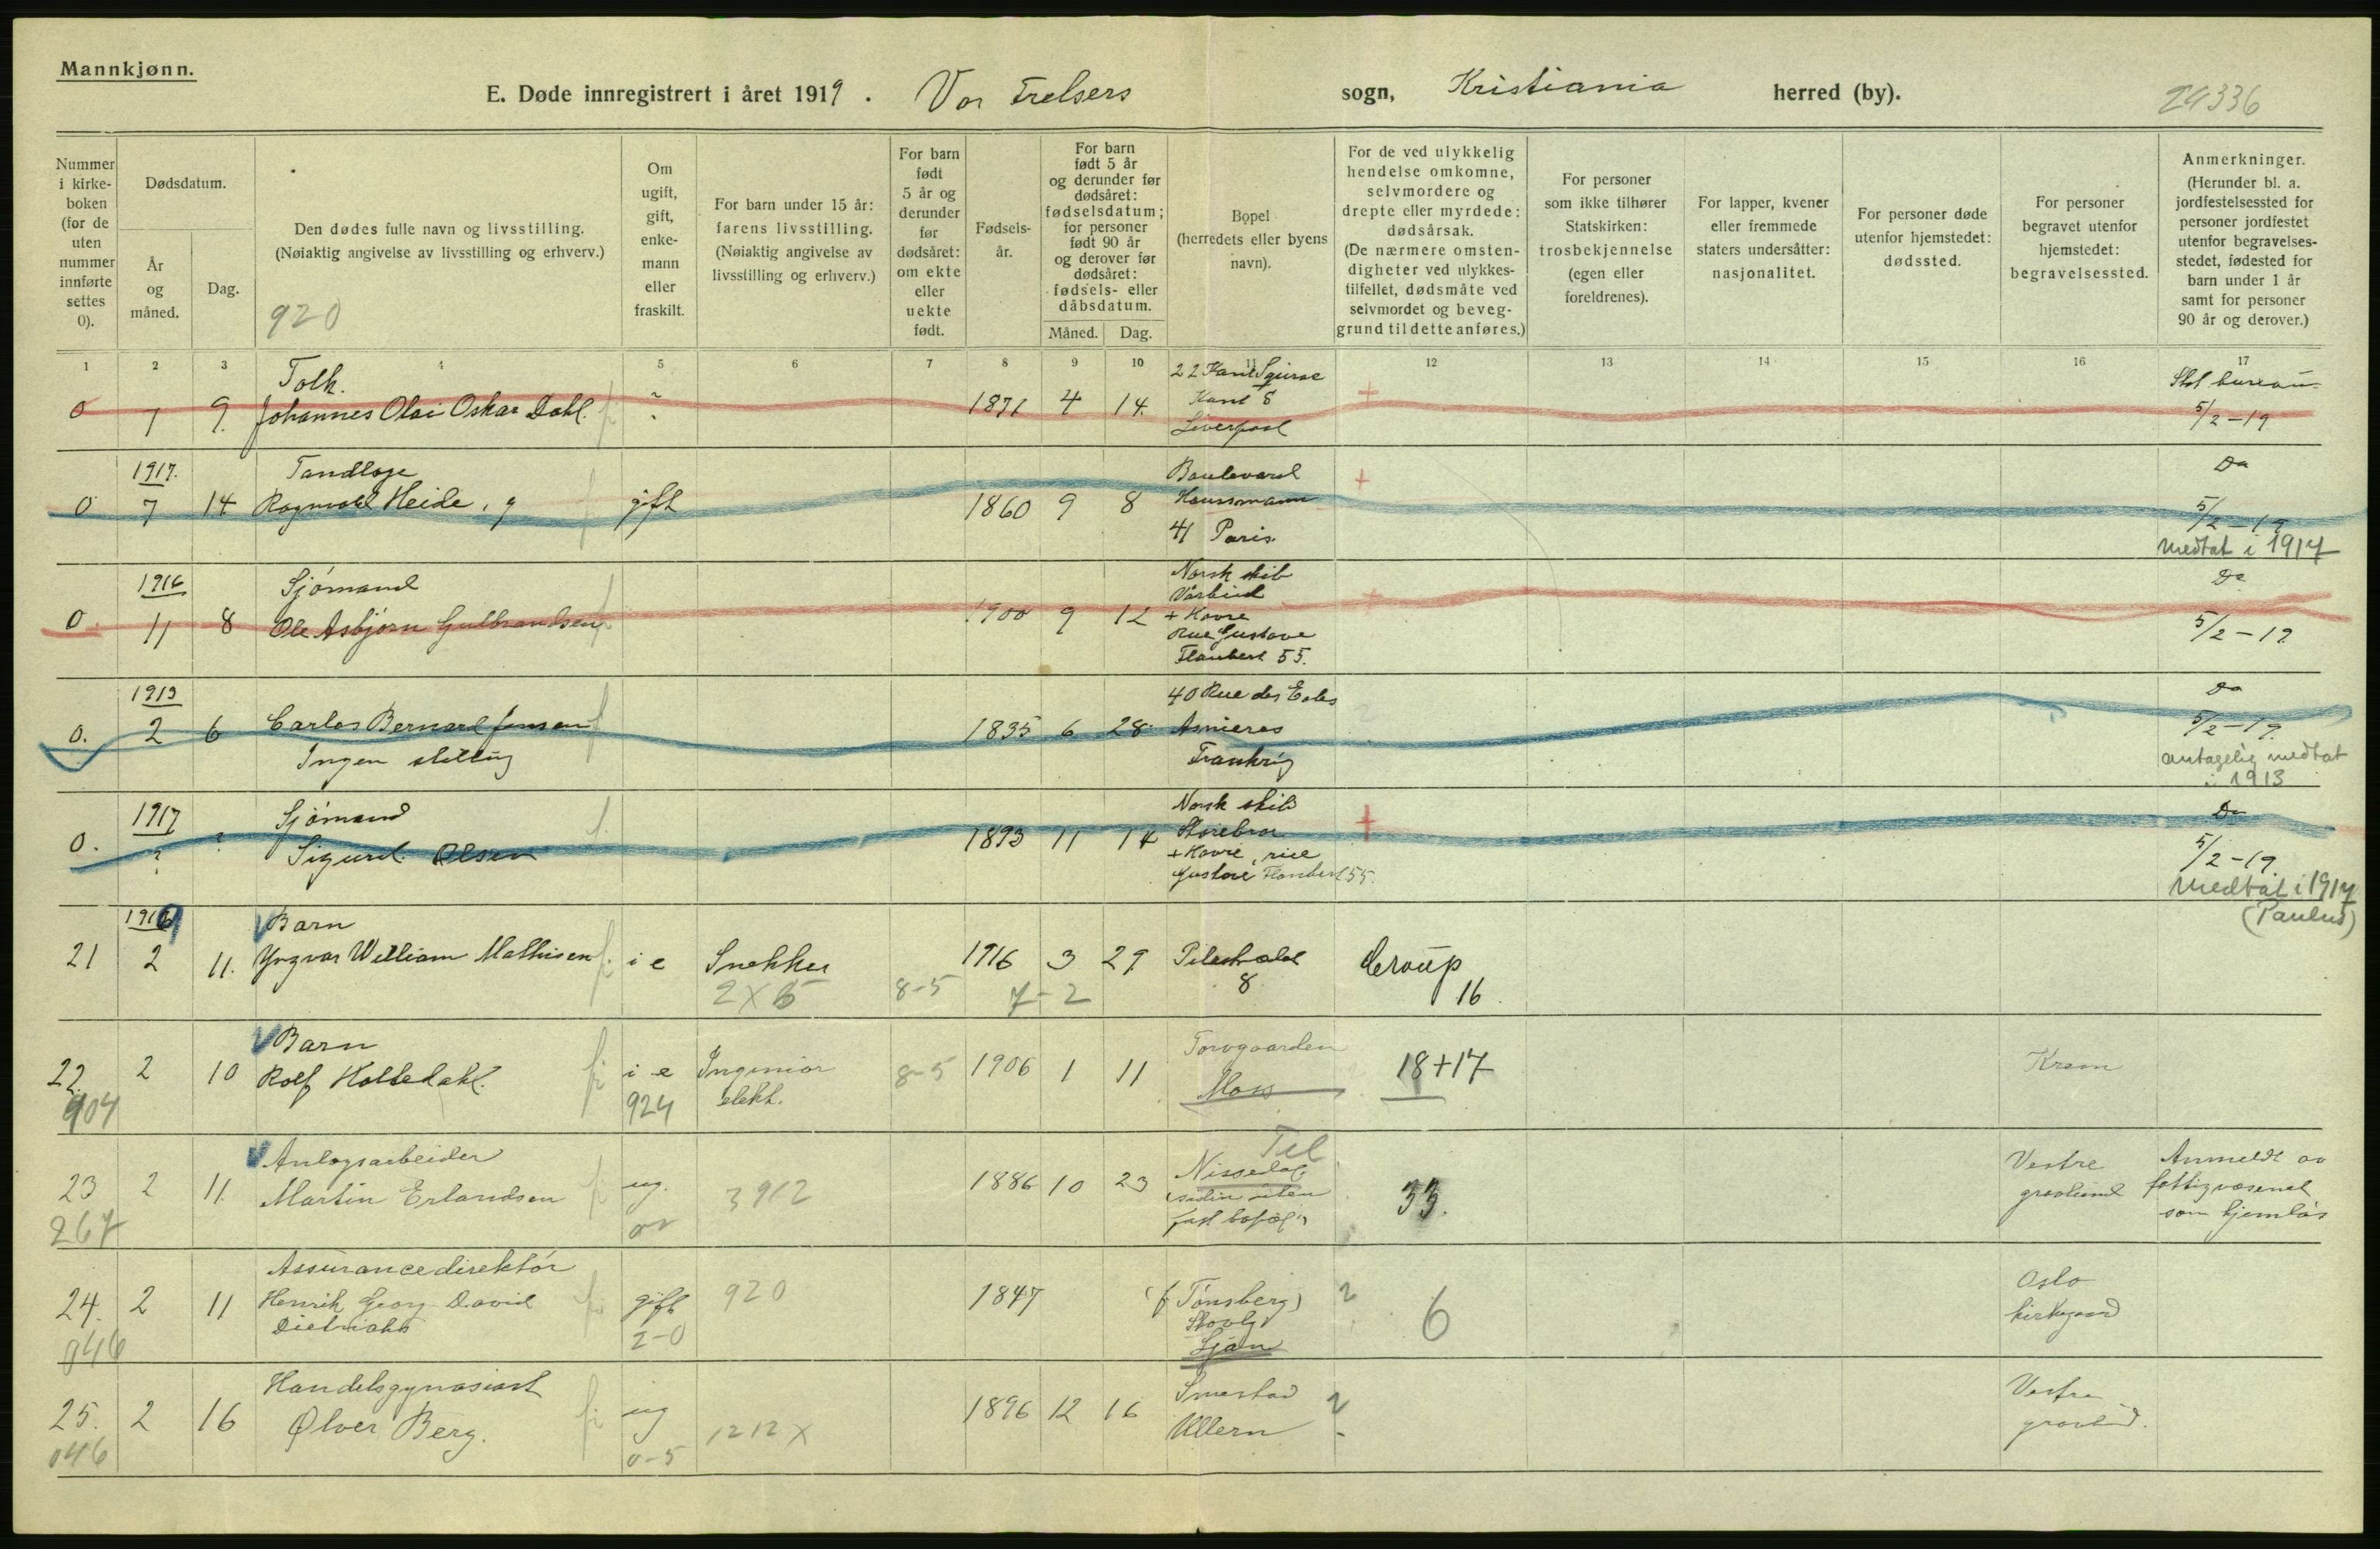 Mannkjønn.
E. Døde innregistrert i året 1919. Vor Frelsers sogn, Kristiania herred (by).
24336
Nummer i kirke-boken (for de uten nummer innførte settes 0).
Dødsdatum.
År og måned.
Dag.
Den dødes fulle navn og livsstilling.
(Nøiaktig angivelse av livsstilling og erhverv.)
920
Om ugift, gift, enke-mann eller fraskilt.
For barn under 15 år: farens livsstilling. (Nøiaktig angivelse av livsstilling og erhverv.)
For barn født 5 år og derunder før dødsåret: om ekte eller uekte født.
Fødsels-år.
For barn født 5 år og derunder før dødsåret: fødselsdatum; for personer født 90 år og derover før dødsåret: fødsels- eller dåbsdatum.
Måned. Dag.
Bopel (herredets eller byens navn).
For de ved ulykkelig hendelse omkomne, selvmordere og drepte eller myrdede: dødsårsak. (De nærmere omsten-digheter ved ulykkes-tilfellet, dødsmåte ved selvmordet og beveg-grund til dette anføres.)
For personer som ikke tilhører Statskirken: trosbekjennelse (egen eller foreldrenes).
For lapper, kvener eller fremmede staters undersåtter: nasjonalitet.
For personer døde utenfor hjemstedet: dødssted.
For personer begravet utenfor hjemstedet: begravelsessted.
Anmerkninger. (Herunder bl. a. jordfestelsessted for personer jordfestet utenfor begravelses-stedet, fødested for barn under 1 år samt for personer 90 år og derover.)
1 2 3 4 5 6 7 8 9 10 11 12 13 14 15 16 17
Tolk.
0 7 9. Johannes Olai Oskar Dahl. 1871 4 14.
Liverpool
Stat bureau
5/2 - 19
1917.
Tandlæge
0 7 14 Ragnvald Heide, g gift 1860 9 8
Boulevard
Haussmann
41 Paris.
Do
5/2 - 19
medtat i 1917
1916
Sjømand
0. 11 8 Ole Asbjørn Gulbrandsen 1900 9 12
Norsk skib
Vårbud
+ Havre
Rue Gustave
Flaubert 55.
Do
5/2 - 19
1913
0. 2 6 Carlos Bernard Jensen 1835 6 28
Ingen stilling
40 Rue des
Asnieres
Frankrig
Do
5/2 - 19.
antagelig medtat
i 1913
1917
Sjømand
0. ? ? Sigurd Olsen 1893 11 14
Norsk skib
Storebror
+ Havre, rue
Gustave Flaubert 55.
Do
5/2 - 19.
Medtat i 1917
(Paulus)
1919
Barn
21 2 11. Yngvar William Mathisen i e Snekker 1916 3 29 Pilestrædet
8
Croup
16.
2 X 6 8-5 7-2
Barn
22. 2 10 Rolf Holtedahl. i e Ingeniør 8-5 1906 1 11
904 924 elekt.
Torvgaarden
Moss
18+17
Krem
Anlægsarbeider
23 2 11. Martin Erlandsen ug. 3912 1886 10 23
267
Tel
Nissedal
siden uten
fast bopæl
33.
Vestre
gravlund
Anmeldt av
fattigvæsenet
som hjemløs
Assurancedirektør
24. 2 11 Henrik Georg David gift 920 1847
Dietrichs
2-0
(f Tønsberg)
Ljan
6
Oslo
kirkegaard
Handelsgymnasiast
25. 2 16 Ølver Berg. ug 1212 X 1896 12 16
046 0-5
Smestad
Ullern
Vestre
gravlund.